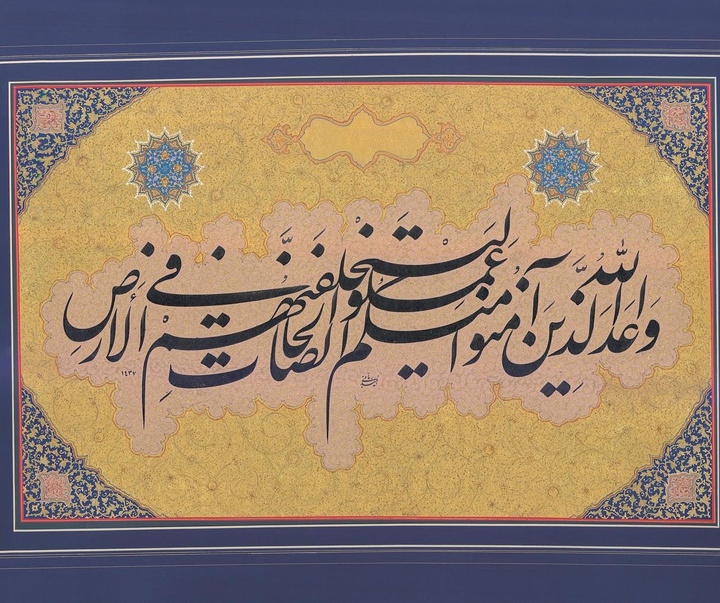 وَعَدَ اللّٰهُ الَّذِينَ آمَنُوا مِنكُم وَعَمِلُوا الصَّالِحَاتِ لَيَستَخلِفَنَّهُم فِي الأَرضِ
١٤٣٧